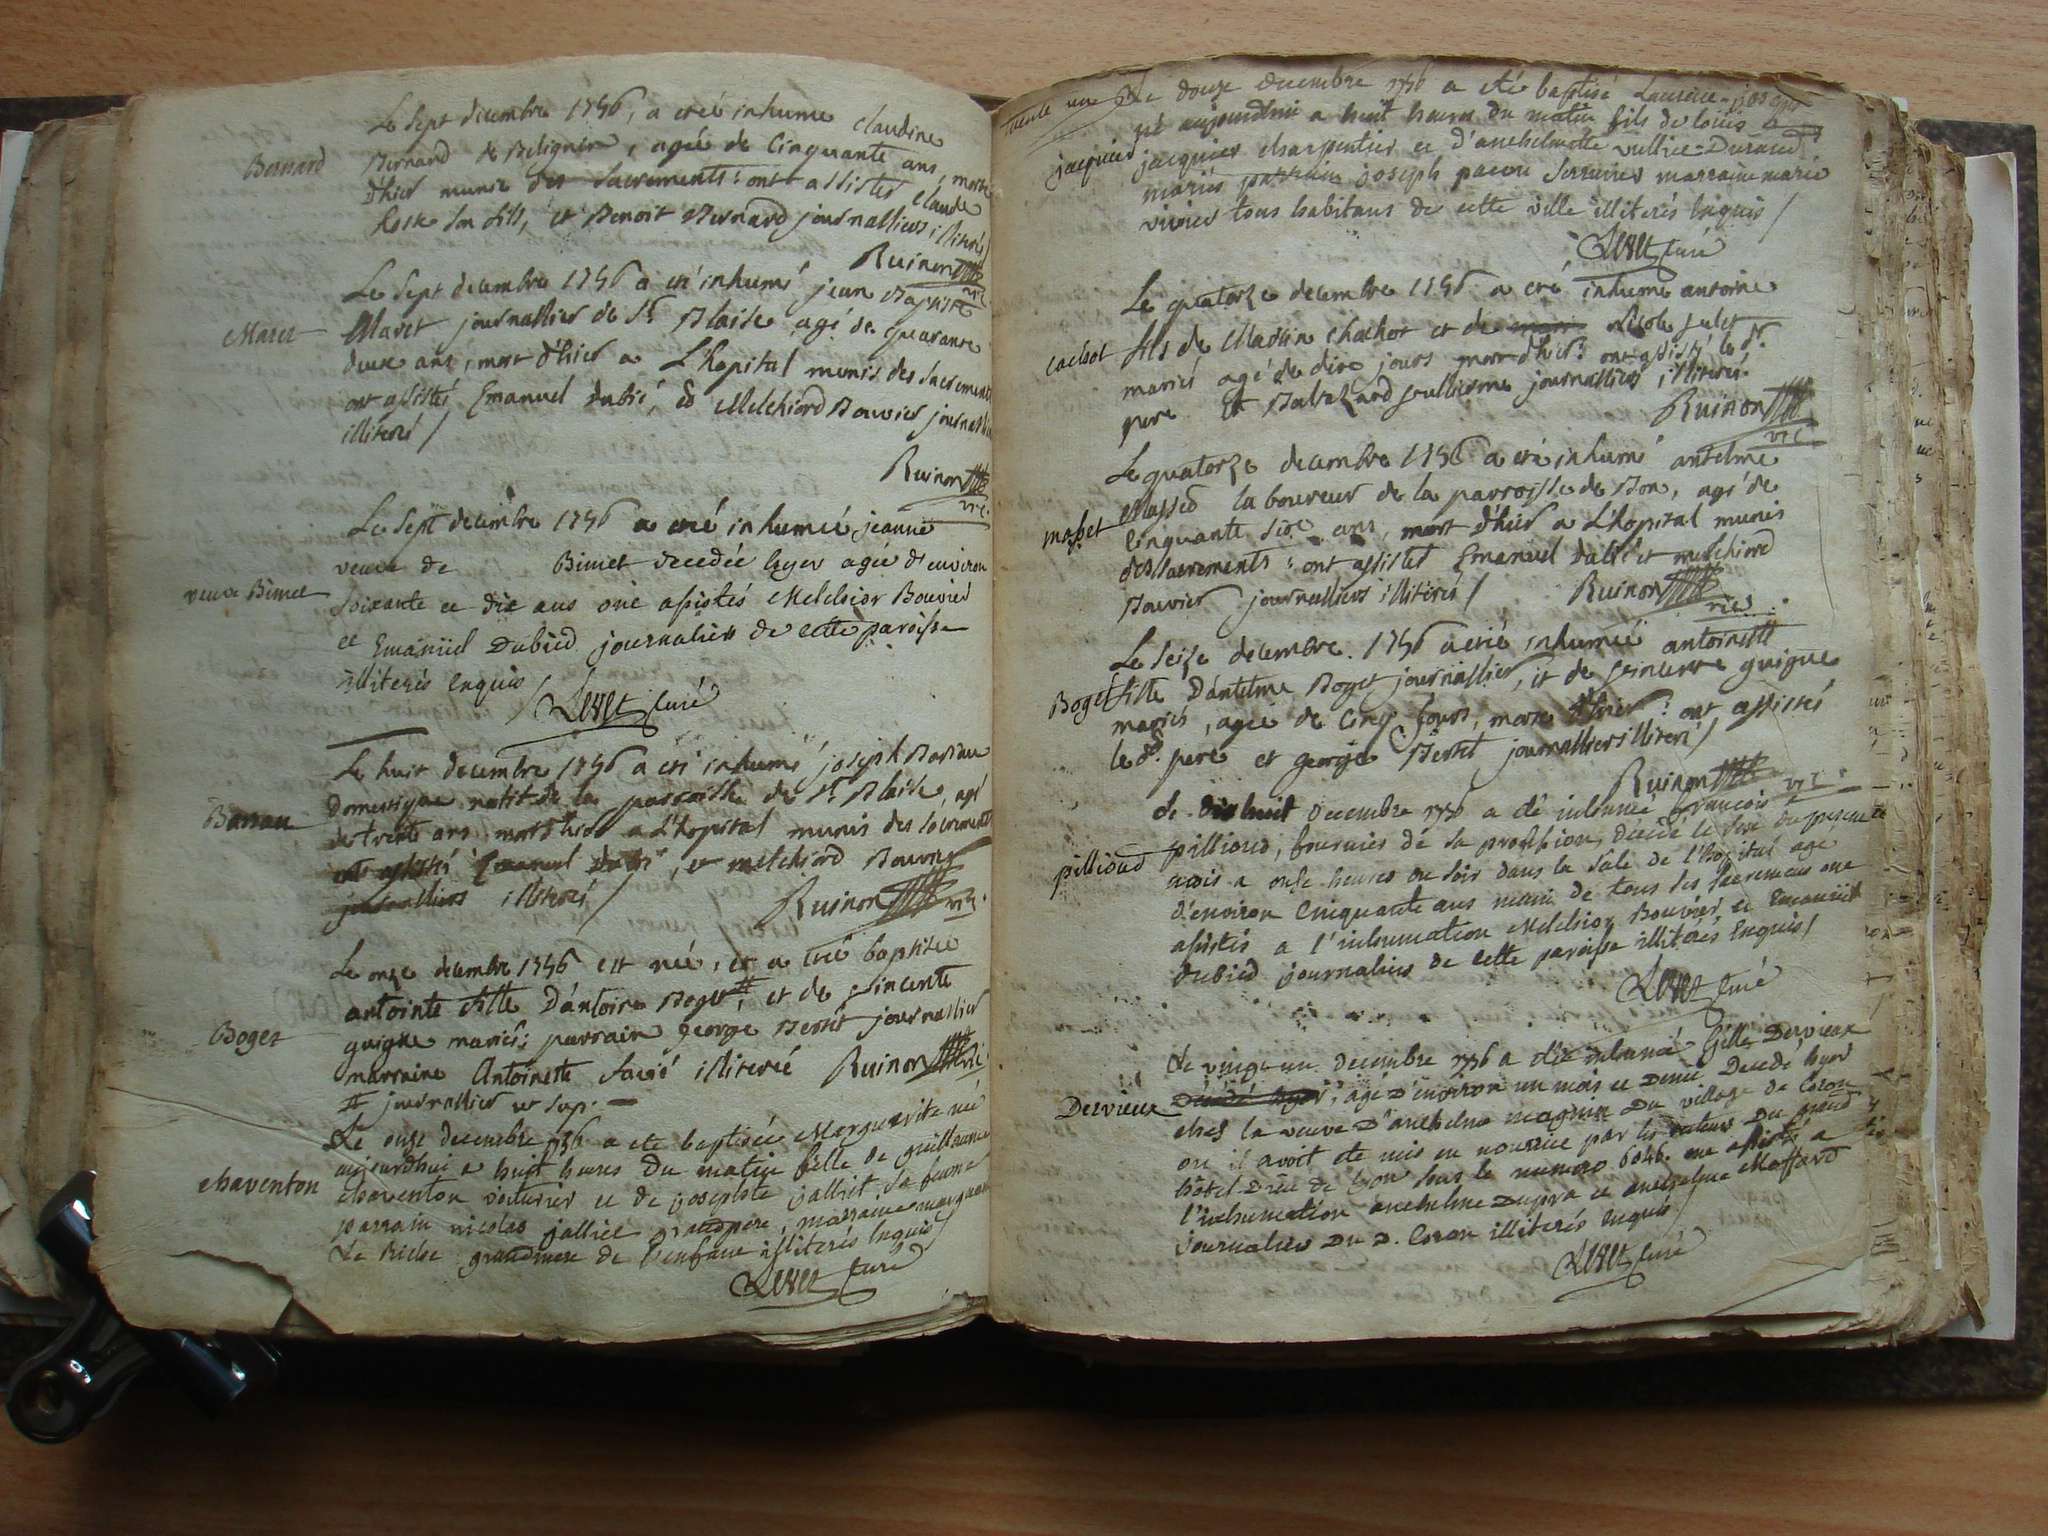 Le Sept decembre 1756, a eté inhumé Claudine
Bernard
Bernard de Beligneu, agée de Cinquante ans, morte
d'hier munie des Sacrements: ont assistés Claude
son fils, et Benoit Bernard journalliers illiterés
Ruinon vic.
Le Sept decembre 1756 a eté inhumé jean Baptiste
Maret
Maret journallier de St. Blaise agé de quarante
deux ans, mort d'hier a L'hopital munis des Sacrements
ont assistés Emanuel dubié, et Melchiord Bouvier journalliers
illiterés /
Ruinon vic.
Le Sept decembre 1756 a eté inhumée jeanne
veuve de Bimet decedée hyer agée d'environ
veuve Bimet
soixante et dix ans ont assistés Melchior Bouvier
et Emanüel Dubied journaliers de cette paroisse
illiterés enquis /
Levet Curé
Le huit decembre 1756 a eté inhumé joseph Barrau
Barrau
domestique natif de la parroisse de St. Blaise, agé
de trente ans mort d'hier a L'hopital munis des Sacrements
ont assistés Emanuel dubié, et melchiord Bouvier
journalliers illiterés /
Ruinon vic.
Le onze decembre 1756 est née, et a eté baptisée
antointe fille D'antoine Boget, et de Vincente
Boget
guigue mariés; parrain george Bertet journallier
marraine Antoinette illiterée Ruinon vic.
journallier ut sup.
Le onze decembre 1756 a eté baptisée Marguerite née
aujourdhui a huit heures du matin fille de guillaume
chaventon
chaventon voiturier et de josephte jallict sa femme
parrain nicolas jallict grandpere, marraine marguerite
Le Riche grandmere de l'enfant illiterés enquis /
Levet Curé
trente un
Le douze decembre 1756 a eté baptisé Laurence-joseph
né aujourdhui a huit heures du matin fils de louis
jacquier
jacquier charpentier et d'anthelmette Durand
mariés parrain joseph serrurier marraine marie
vivier tous habitans de cette ville illiterés enquis /
Levet Curé
Le quatorze decembre 1756 a eté inhumé antoine
cachot
fils de Martin Chachot et de Nicole julet
mariés agé de dix jours mort d'hier: ont assistés le dt.
pere et Baltazard guillierme journalliers illiterés.
Ruinon vic.
Le quatorze decembre 1756 a eté inhumé antelme
Massed laboureur de la parroisse de Bon, agé de
masset
Cinquante six ans, mort d'hier a L'hopital munis
des Sacrements: ont assistés Emanuel dubié et melchiord
Bouvier journalliers illiterés / Ruinon vic.
Le Seize decembre 1756 a eté inhumée antoinette
Boget
fille D'antelme Boget journallier, et de Vincente guigue
mariés, agée de Cinq jours, morte d'hier: ont assistés
le dt. pere et george Bertet journalliers illiterés /
Ruinon vic.
Le Dix huit Decembre 1756 a eté inhumé françois
pillioud
pillioud, fournier de sa profession, decedé le seze du present
mois a onze heures du soir dans la sale de l'hopital agé
d'environ Cinquante ans muni de tous les sacremens ont
assistés a l'inhumation Melchior Bouvier et Emanüel
Dubied journaliers de cette paroisse illiterés enquis /
Levet Curé
Le vingt un decembre 1756 a eté inhumé Gille Dervieux
Dervieux
Décédé hyer, agé d'environ un mois et demi Decede hyer
ches la veuve D'anthelme magnin du village de Coron
ou il avoit eté mis en nourice par les recteurs du grand
hôtel Dieu de Lyon sous le numero 6046. ont assistés a
l'inhumation anthelme Dupra et anthelme Massard
journaliers du D. Coron illiterés enquis /
Levet Curé